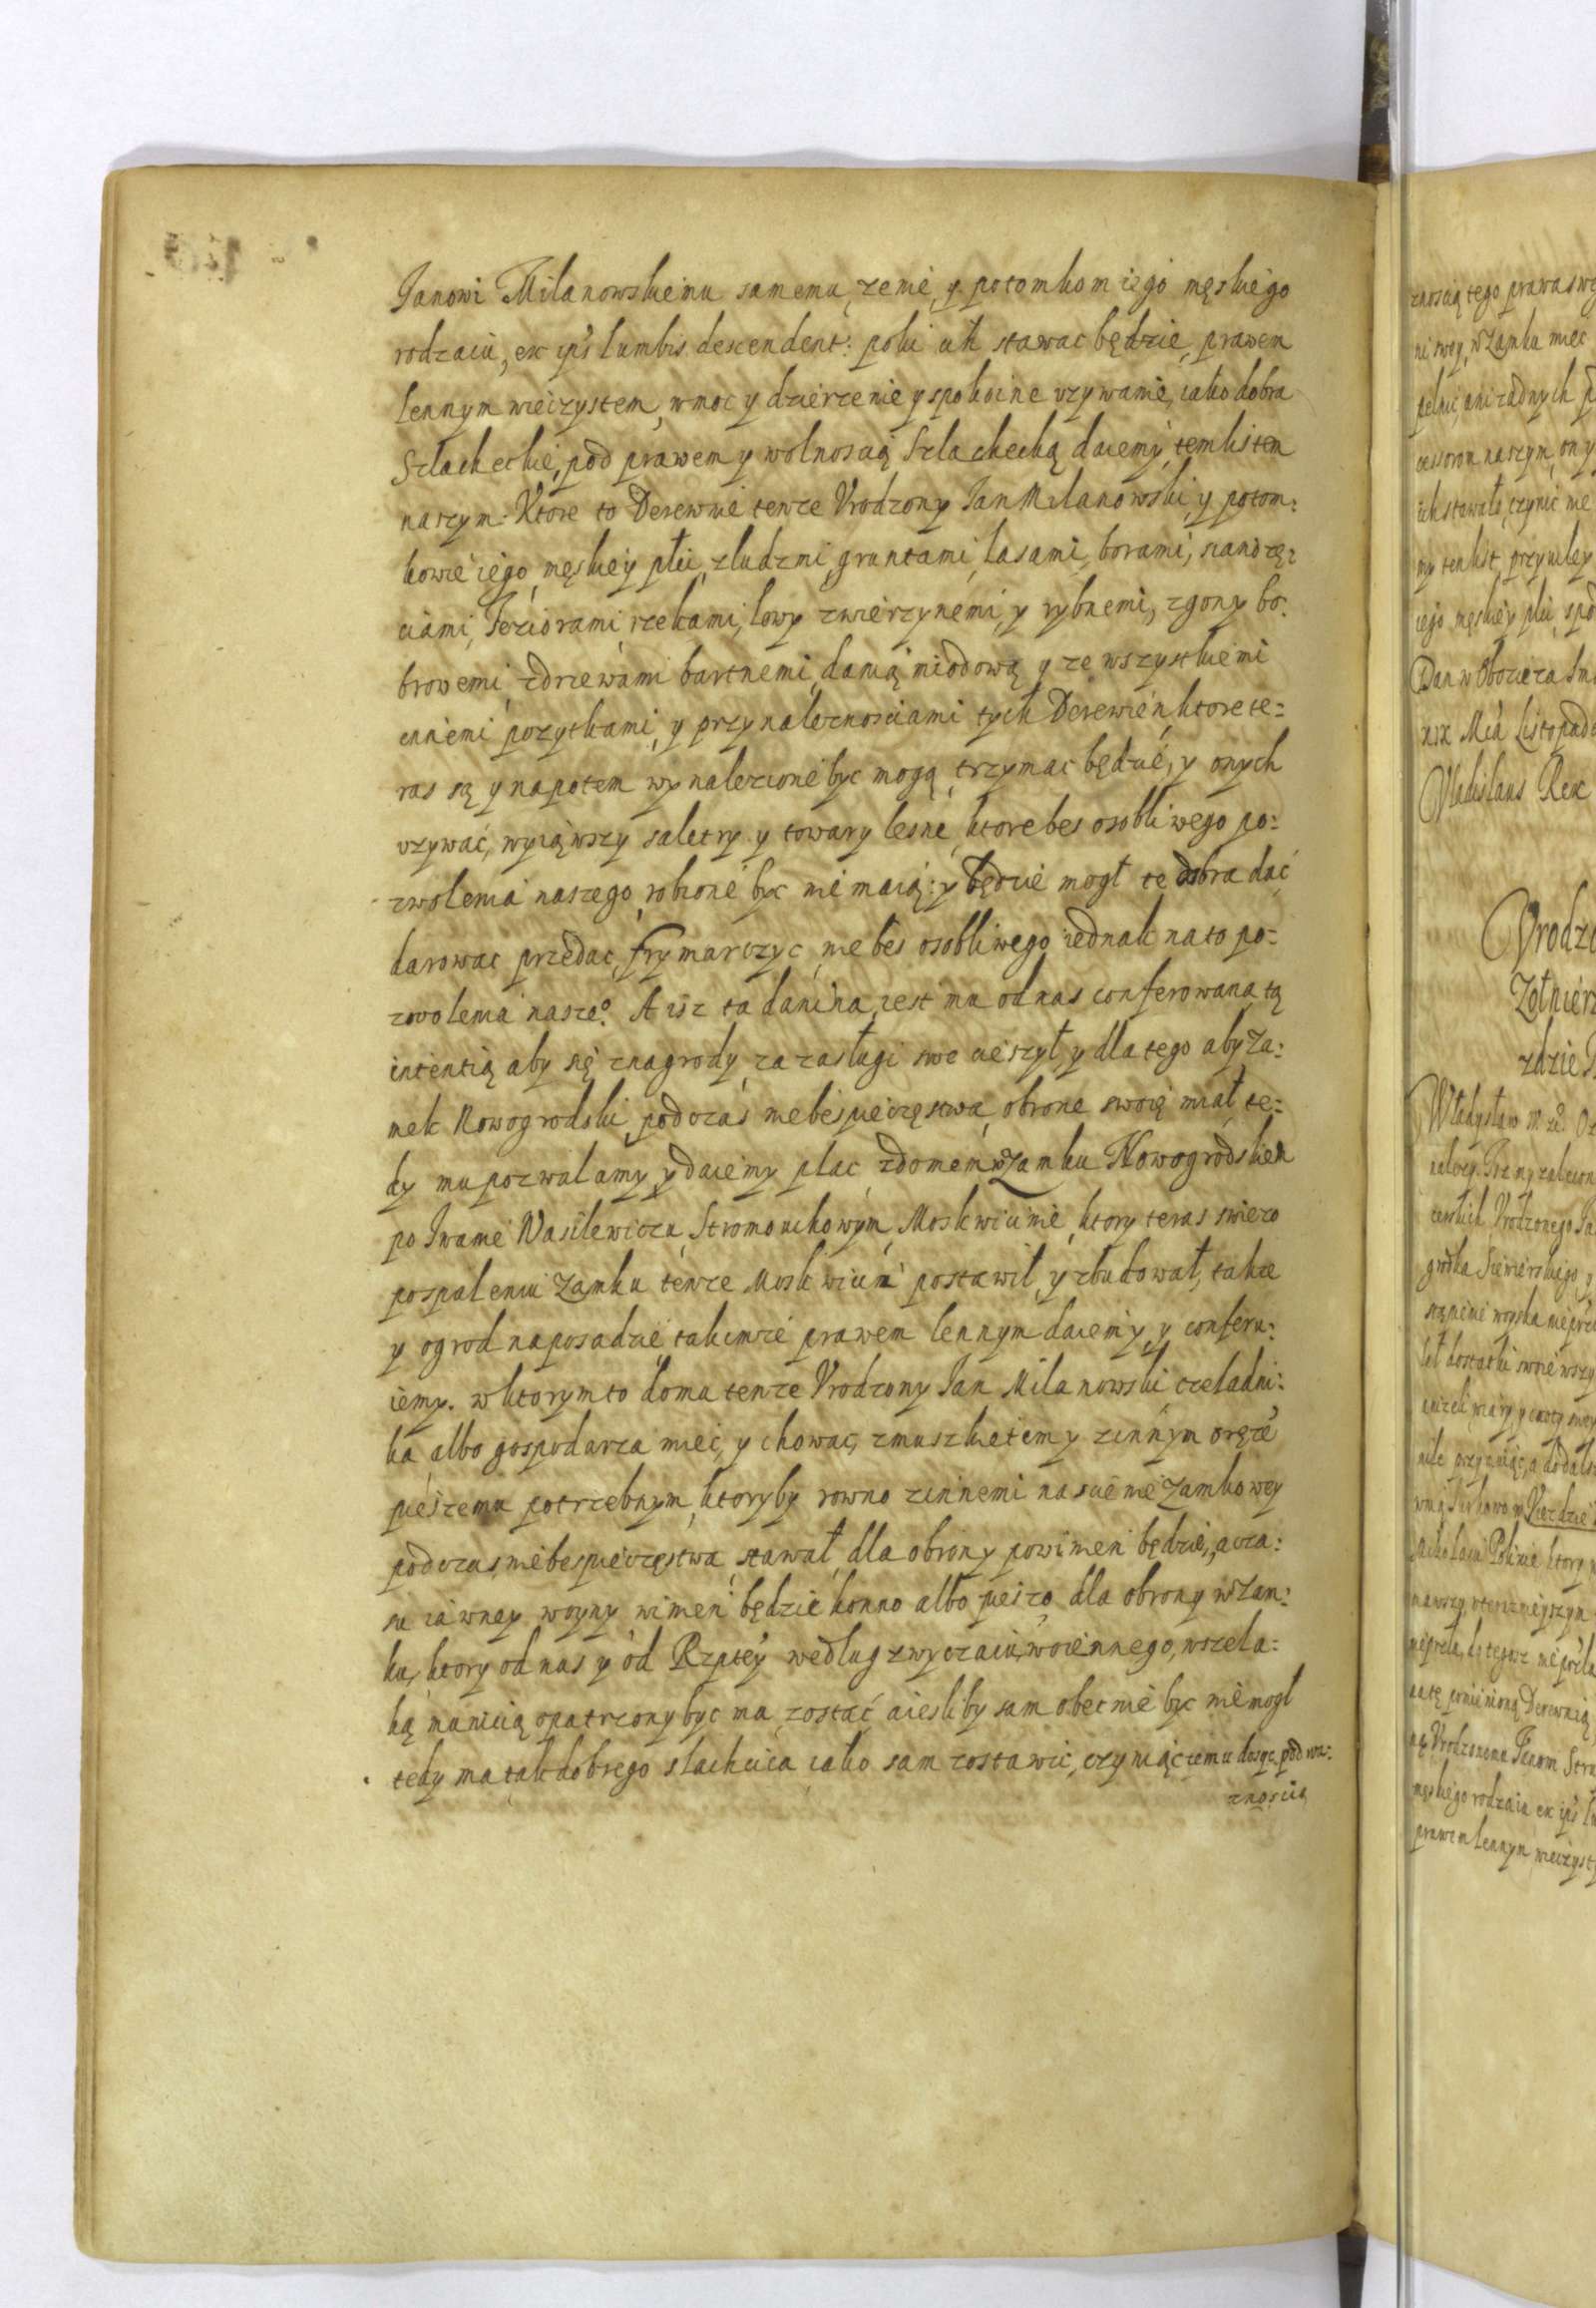 Janowi Milanowskiemu samemu, zenie, y potomkom iego męskiego
rodzaiu, ex ip's lumbis descendent: poki ich stawac będzie, prawem
Lennym wieczystem, w moc y dzierzenie y spokoine uzywanie, iako dobra
Szlacheckie, pod prawem y wolnoscią Szlachecką daiemy, tem listem
naszym. Ktore to Derewnie tenze Vrodzony Jan Milanowski, y potom:
kowie iego męskiey płci, z ludzmi, gruntami, lasami, borami, sianozę:
ciami, Jeziorami, rzekami, lowy zwierzynemi, y rybnemi, z gony bo:
browemi, z drzewami bartnemi, danią miodową y ze wszystkiemi
innemi pozytkami, y przynaleznosciami tych Derewień, ktore te:
ras są y napotem wynalezione byc mogą, trzymac będzie, y onych
uzywać, wyiąwszy saletry y towary lesne, ktore bes osobliwego po:
zwolenia naszego, robione byc nie maią: y będzie mogł te dobra dać
darowac przedac, frymarczyc, nie bes osobliwego iednak na to po:
zwolenia nasze° A isz ta danina, iest mu od nas conferowana tą
intentią aby się z nagrody, za zasługi swe cieszył, y dla tego aby Za:
mek Nowogrodski, pod czas niebespieczęstwa, obronę swoię miał, te:
dy mu pozwalamy, y daiemy plac, z domem w Zamku Nowogrodskiem
po Iwanie Wasilewiczu, Stromouchowym, Moskwicinie, ktory teras swiezo
po spaleniu Zamku tenze Moskwicin postawił, y zbudował, takze
y ogrod na posadzie takimze prawem lennym daiemy, y conferu:
iemy. w ktorym to domu tenze Vrodzony Jan Milanowski czeladni:
ka, albo gospodarza miec, y chowac, z muszkietem y z innym oręze
pieszemu potrzebnym, ktoryby rowno z innemi na scienie Zamkowey
pod czas niebespieczęstwa, stawał, dla obrony powinien będzie, a cza:
su iawney woyny winien będzie konno albo pieszo, dla obrony w Zam:
ku, ktory od nas y od Rzptey według zwyczaiu, woiennego, wszela:
ką municią opatrzony byc ma, zostać, a iesliby sam obecnie byc nie mogł
tedy ma tak dobrego slachcica, iako sam zostawic, czyniąc temu dosyc, pod wa:
znoscią
znoscią tego prawa swe
ni swoy, w Zamku miec
pełnic, ani zadnych p
cessorom naszym, ony
ich stawało, czynic nie
my ten list, przywiley
iego męskiey płci, spo
Dan w Obozie za Smo
xix Mca Listopada
Vladislaus Rex
Vrodzo
Zołnierz
zdzie